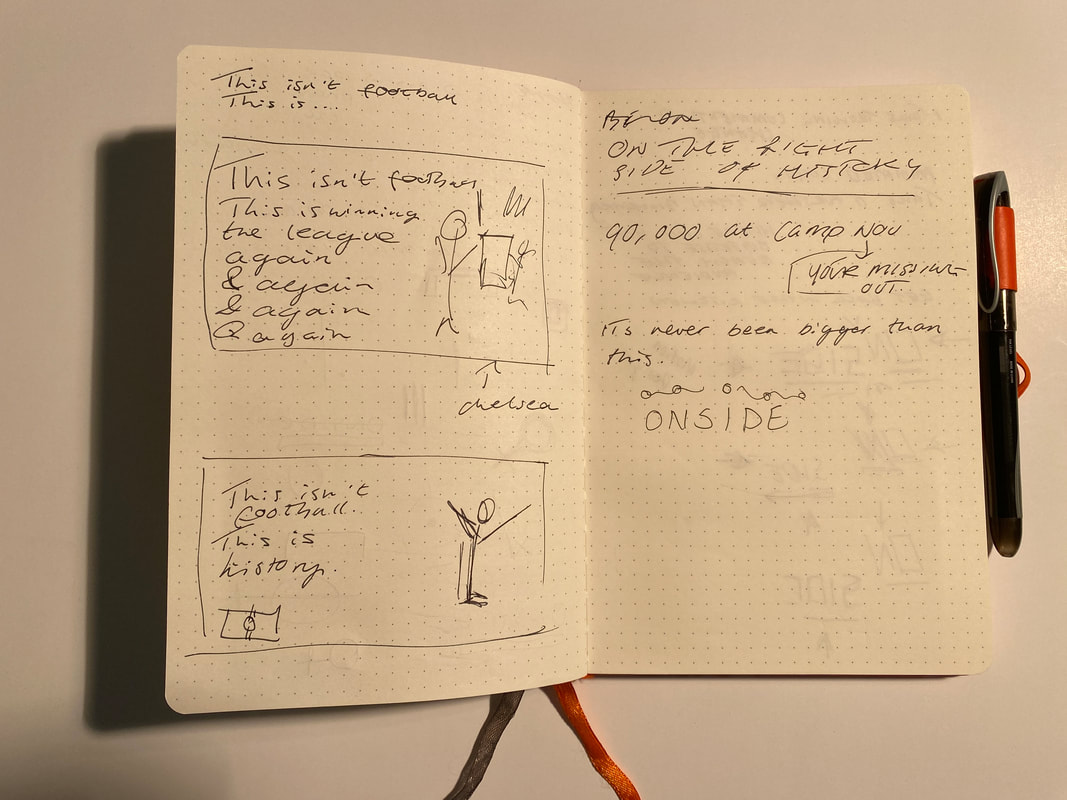 This isn't football
This is...
This isn't football
This is winning
the league
again
& again
& again
& again
chelsea
This isn't
football.
This is
history.
ON THE RIGHT
SIDE OF HISTORY
90,000 at Camp Nou
YOUR MISSING
OUT.
ITs never been bigger than
this.
ONSIDE